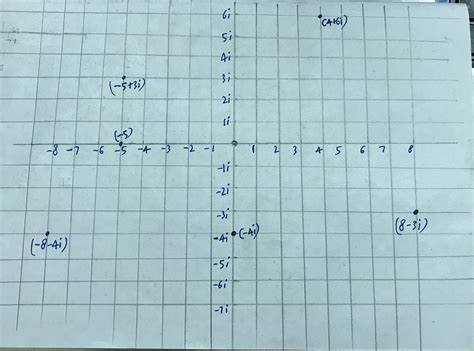 6i
(4+6i)
5i
4i
3i
(-5+3i)
2i
1i
(-5)
-8 -7 -6 -5 -4 -3 -2 -1 1 2 3 4 5 6 7 8
-1i
-2i
-3i
(8-3i)
-4i (-4i)
(-8-4i)
-5i
-6i
-7i